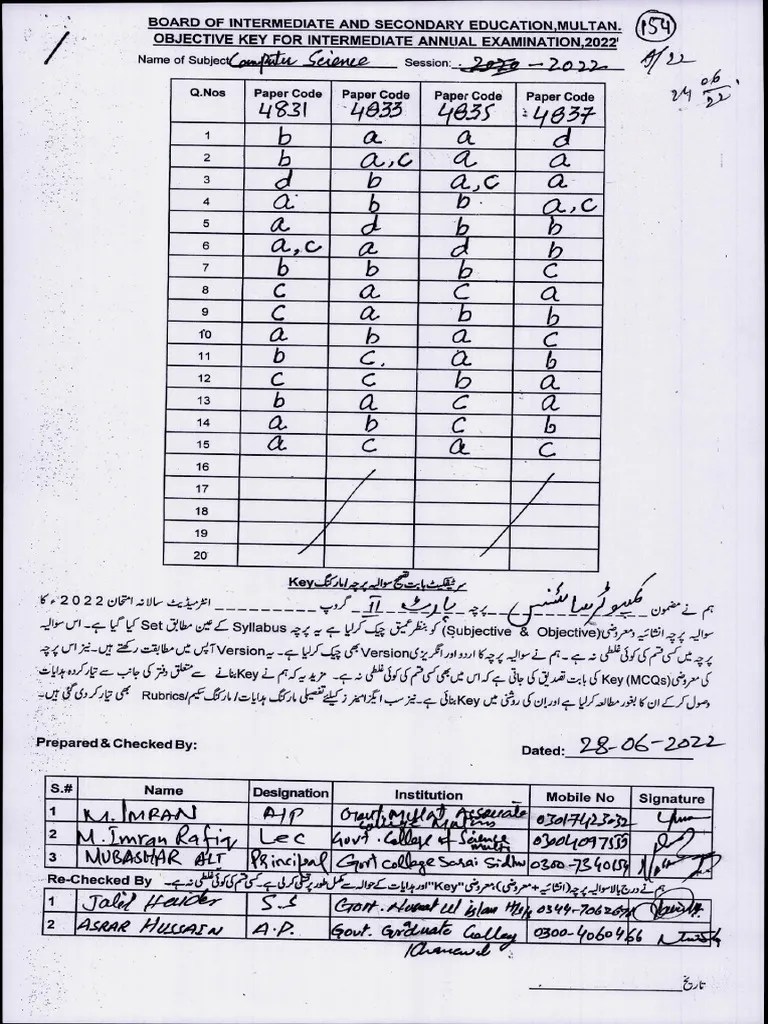 BOARD OF INTERMEDIATE AND SECONDARY EDUCATION,MULTAN.
154
OBJECTIVE KEY FOR INTERMEDIATE ANNUAL EXAMINATION,2022
Name of Subject Computer Science Session: 2020-2022
A/22
24 06/22
Q.Nos Paper Code 4831 Paper Code 4833 Paper Code 4835 Paper Code 4837
1 b a a d
2 b a,c a a
3 d b a,c a
4 a b b a,c
5 a d b b
6 a,c a d b
7 b b b c
8 c a c a
9 c a b b
10 a b a c
11 b c a b
12 c c b a
13 b a c a
14 a b c b
15 a c a c
16
17
18
19
20
سرٹیفکیٹ بابت تصحیح سوالیہ پرچہ/مارکنگ Key
ہم نے مضمون کمپیوٹر سائنس پرچہ پارٹ II گروپ انٹرمیڈیٹ سالانہ امتحان 2022ء کا
سوالیہ پرچہ انشائیہ و معروضی (Subjective & Objective) کو بنظر عمیق چیک کرلیا ہے یہ پرچہ Syllabus کے عین مطابق Set کیا گیا ہے۔ اس سوالیہ
پرچہ میں کسی قسم کی کوئی غلطی نہ ہے۔ ہم نے سوالیہ پرچہ کا اردو اور انگریزی Version بھی چیک کرلیا ہے۔ یہ Version آپس میں مطابقت رکھتے ہیں۔ نیز اس پرچہ
کی معروضی (MCQs) Key کی بابت تصدیق کی جاتی ہے کہ اس میں بھی کسی قسم کی کوئی غلطی نہ ہے۔ مزید یہ کہ ہم نے Key بنانے سے متعلق دفتر کی جانب سے تیار کردہ ہدایات
وصول کرکے ان کا بغور مطالعہ کرلیا ہے اور ان کی روشنی میں Key بنائی ہے۔ نیز سب ایگزامینرز کیلئے تفصیلی مارکنگ ہدایات/مارکنگ سکیم/Rubrics بھی تیار کردی گئی ہیں۔
Prepared & Checked By: Dated: 28-06-2022
S.# Name Designation Institution Mobile No Signature
1 M. IMRAN A/P Govt. Millat Associate College Multan 03017423032
2 M. Imran Rafiq Lec Govt. College of Science Multi 03004097559
3 MUBASHAR ALI Principal Govt College Sarai Sidhu 0300-7340154
Re-Checked By ہم نے درج بالا سوالیہ پرچہ (انشائیہ + معروضی) معروضی "Key" اور ہدایات کے حوالہ سے مکمل طور پر تسلی کرلی ہے۔ کسی قسم کی کوئی غلطی نہ ہے۔
1 Jalil Haider S.S Govt. Nusrat ul Islam
2 ASRAR HUSSAIN A.P. Govt. Graduate College Khanewal 0300-4060466
تاریخ